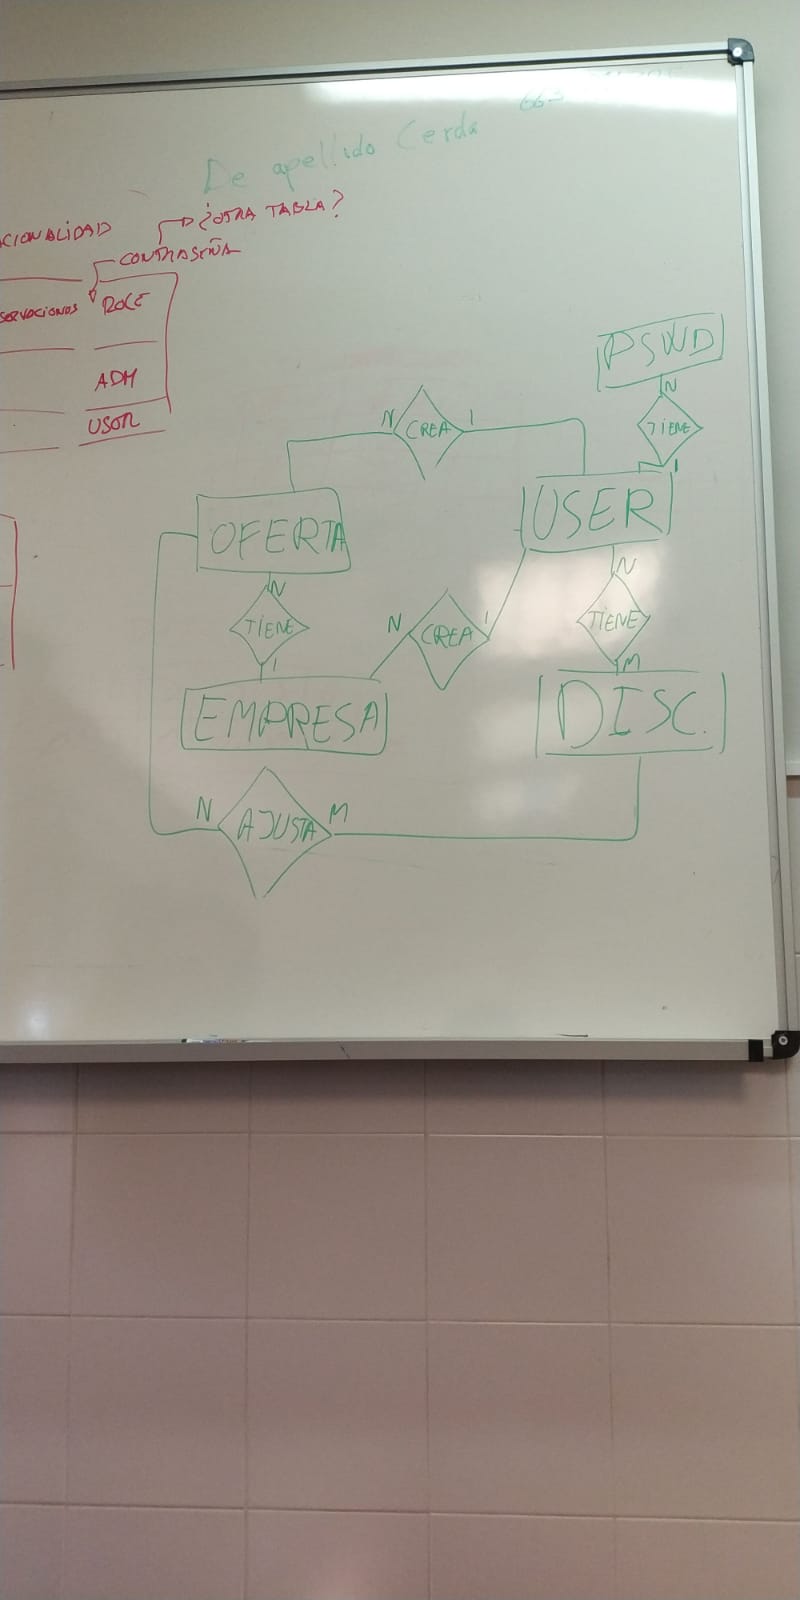 De apellido Cerda
¿OTRA TABLA?
CONTRASEÑA
ROLE
ADM
USER
PSWD
N
TIENE
1
N CREA 1
OFERTA
USER
N
TIENE
1
N CREA 1
N
TIENE
M
EMPRESA
DISC.
N AJUSTA M